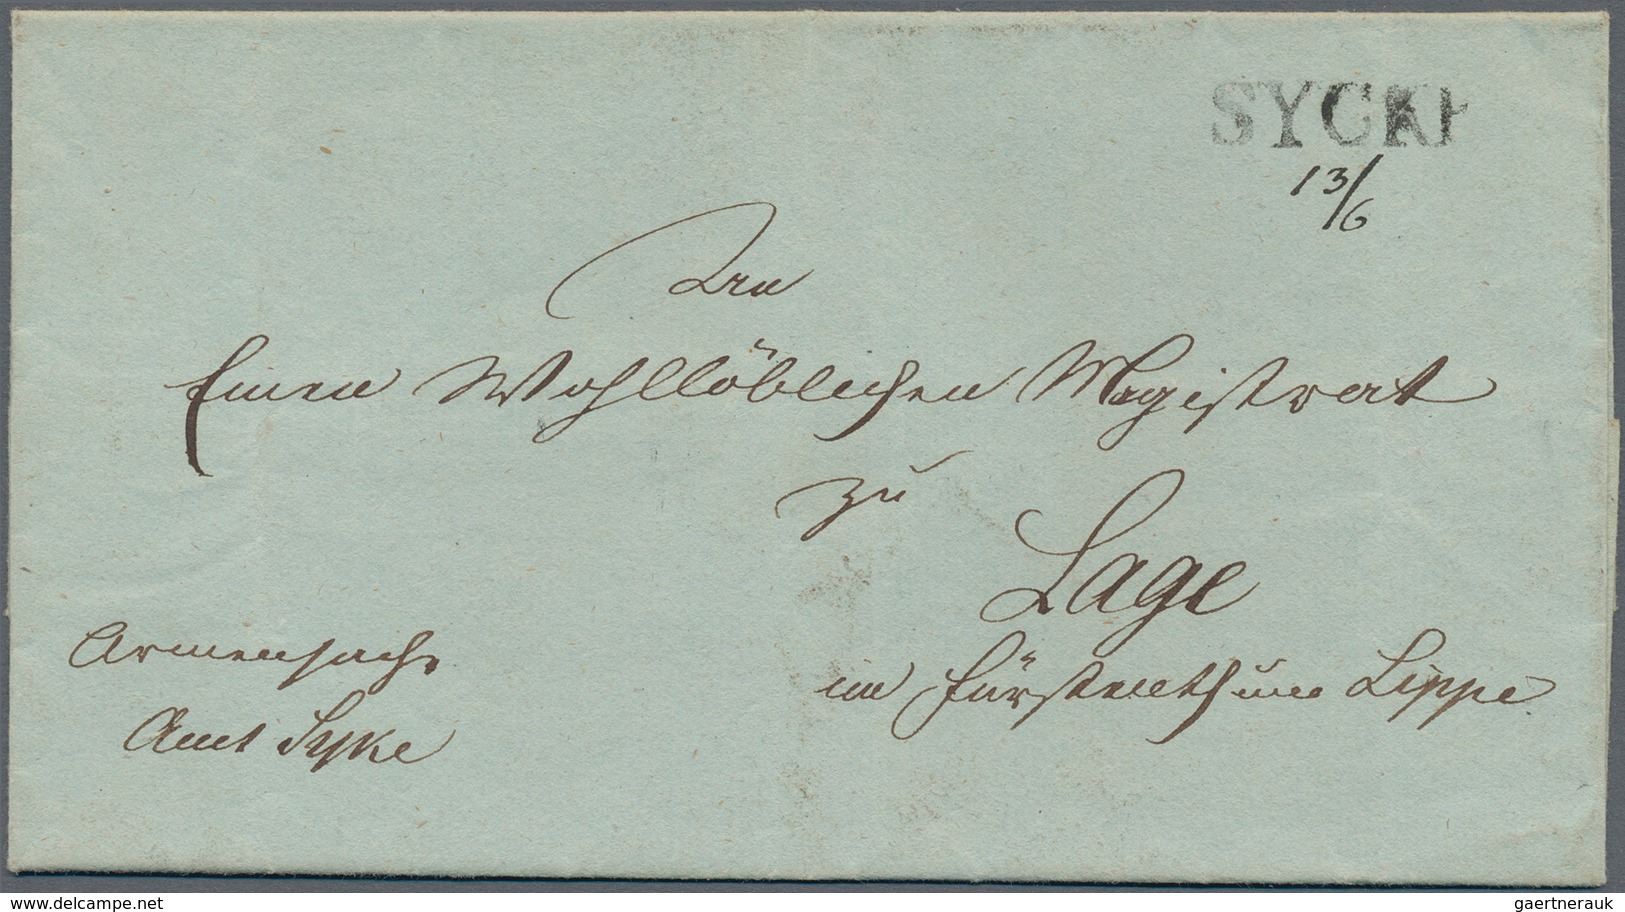 SYCKE
13/6
An
Einen Wohllöblichen Magistrat
zu
Lage
im Fürstenthum Lippe
Armensache
Amt Syke
delcampe.net
gaertnerauk